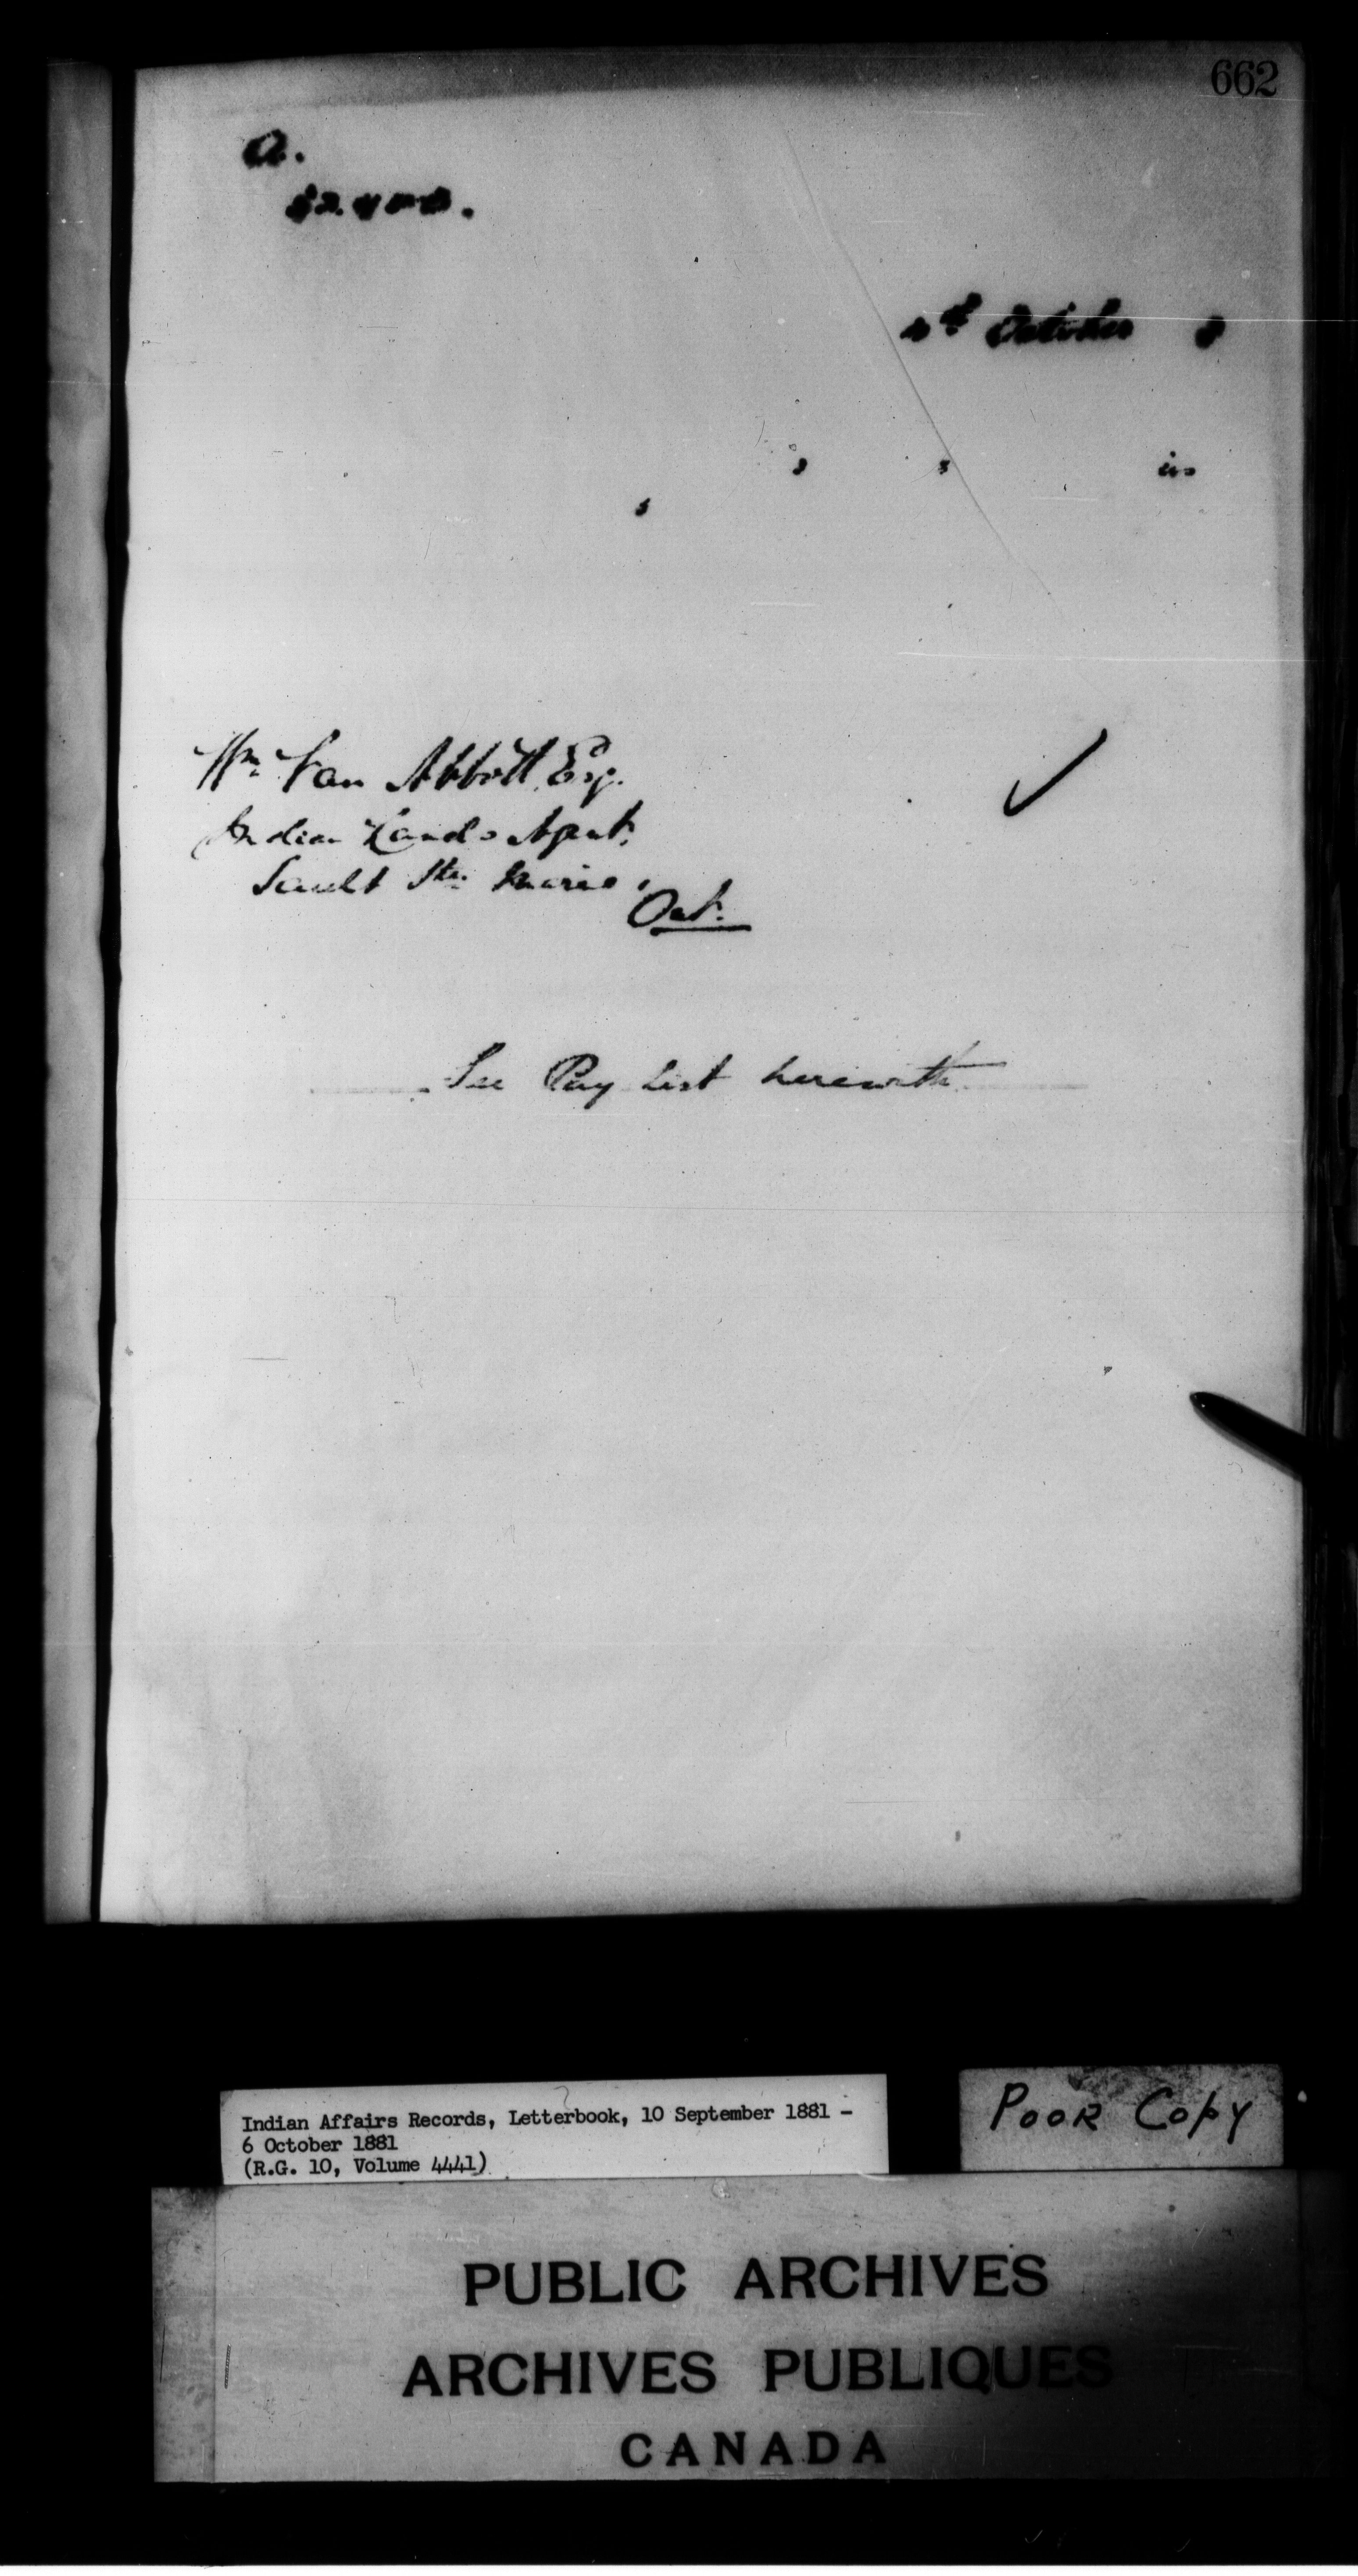 662
a.
th October
Wm Van Abbott, Esq.
Indian Lands Agent,
Sault Ste. Marie,
Ont.
See Pay List herewith
Indian Affairs Records, Letterbook, 10 September 1881 -
6 October 1881
(R.G. 10, Volume 4441)
POOR COPY
PUBLIC ARCHIVES
ARCHIVES PUBLIQUES
CANADA